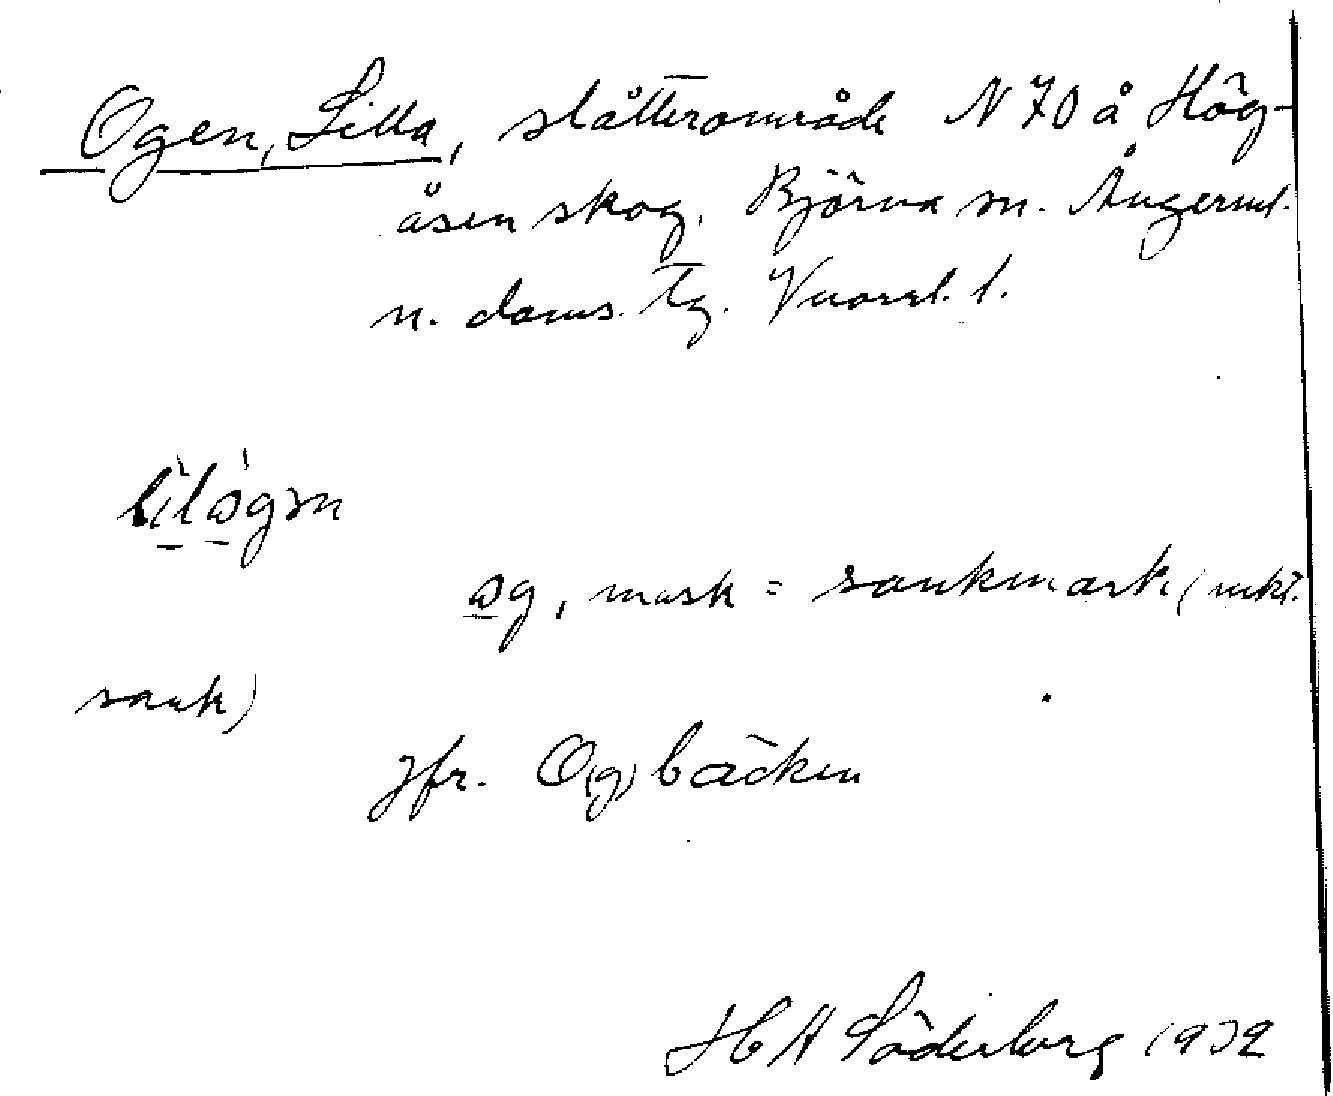 Ogen, Lilla, slåtterområde N 70 å Hög-
åsen skog, Björna sn. Ångerml.
n. doms. Tg. Vnorrl. l.
lilogən
og, mask = sankmark (
sank)
jfr. O(g)bäcken
H A Söderborg 1932